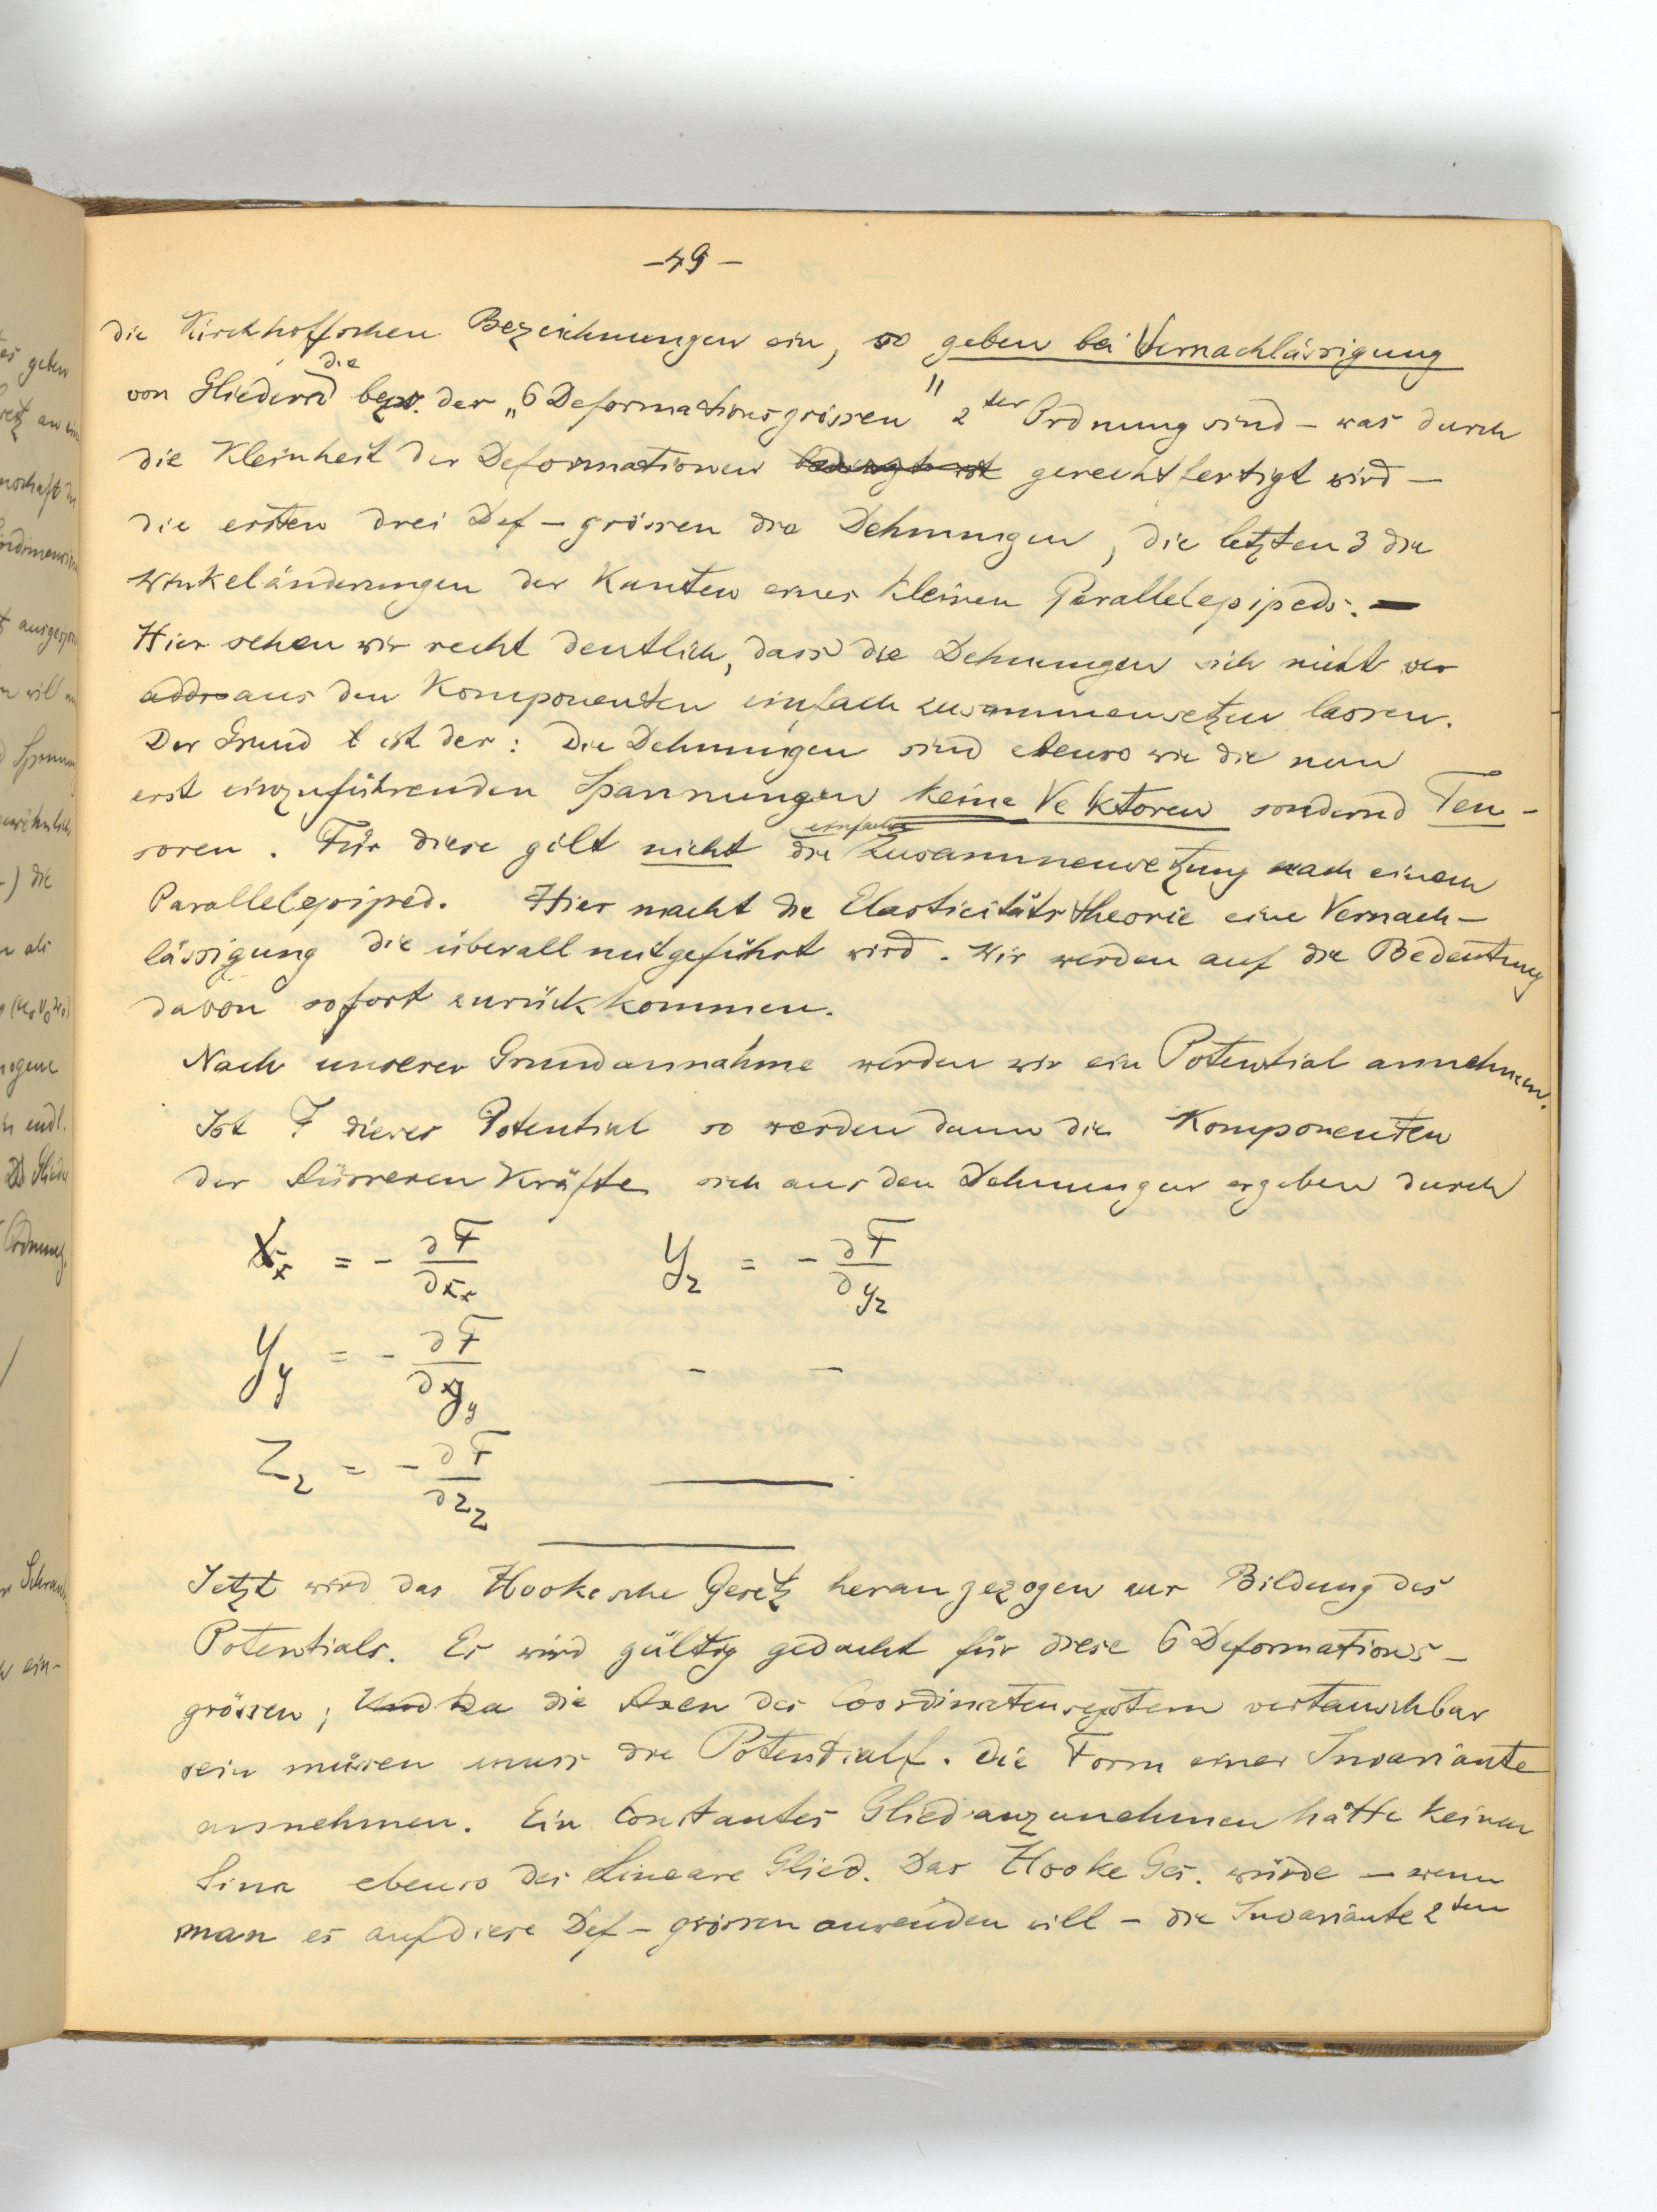 -49-
die Kirchhoffschen Bezeichnungen ein, so geben bei Vernachlässigung
von Gliedern die bez. der „6 Deformationsgrössen" 2ter Ordnung sind - was durch
die Kleinheit der Deformationen bedingt ist gerechtfertigt wird -
die ersten drei Def-grössen die Dehnungen, die letzten 3 die
Winkeländerungen der Kanten eines kleinen Parallelepipeds. -
Hier sehen wir recht deutlich, dass die Dehnungen sich nicht
aus den Komponenten einfach zusammensetzen lassen.
Der Grund ist der: Die Dehnungen sind ebenso wie die nun
erst einzuführenden Spannungen keine Vektoren sondernd Ten-
soren. Für diese gilt nicht die einfache Zusammensetzung nach einem
Parallelepiped. Hier macht die Elasticitätstheorie eine Vernach-
lässigung die überall mitgeführt wird. Wir werden auf die Bedeutung
davon sofort zurückkommen.
Nach unserer Grundannahme werden wir ein Potential annehmen.
Ist F dieses Potential so werden dann die Komponenten
der Äusseren Kräfte sich aus den Dehnungen ergeben durch
X_x = - ∂F/∂x_x   Y_z = - ∂F/∂y_z
Y_y = - ∂F/∂y_y   -   -
Z_z = - ∂F/∂z_z
Jetzt wird das Hookesche Gesetz herangezogen zur Bildung des
Potentials. Es wird gültig gedacht für diese 6 Deformations-
grössen; Und da die Axen des Coordinatensystem vertauschbar
sein müssen muss die Potentialf. die Form einer Invariante
annehmen. Ein Constantes Glied anzunehmen hätte keinen
Sinn ebenso das Lineare Glied. Das Hooke Ges. würde - wenn
man es auf diese Def-grössen anwenden will - die Invariante 2ten